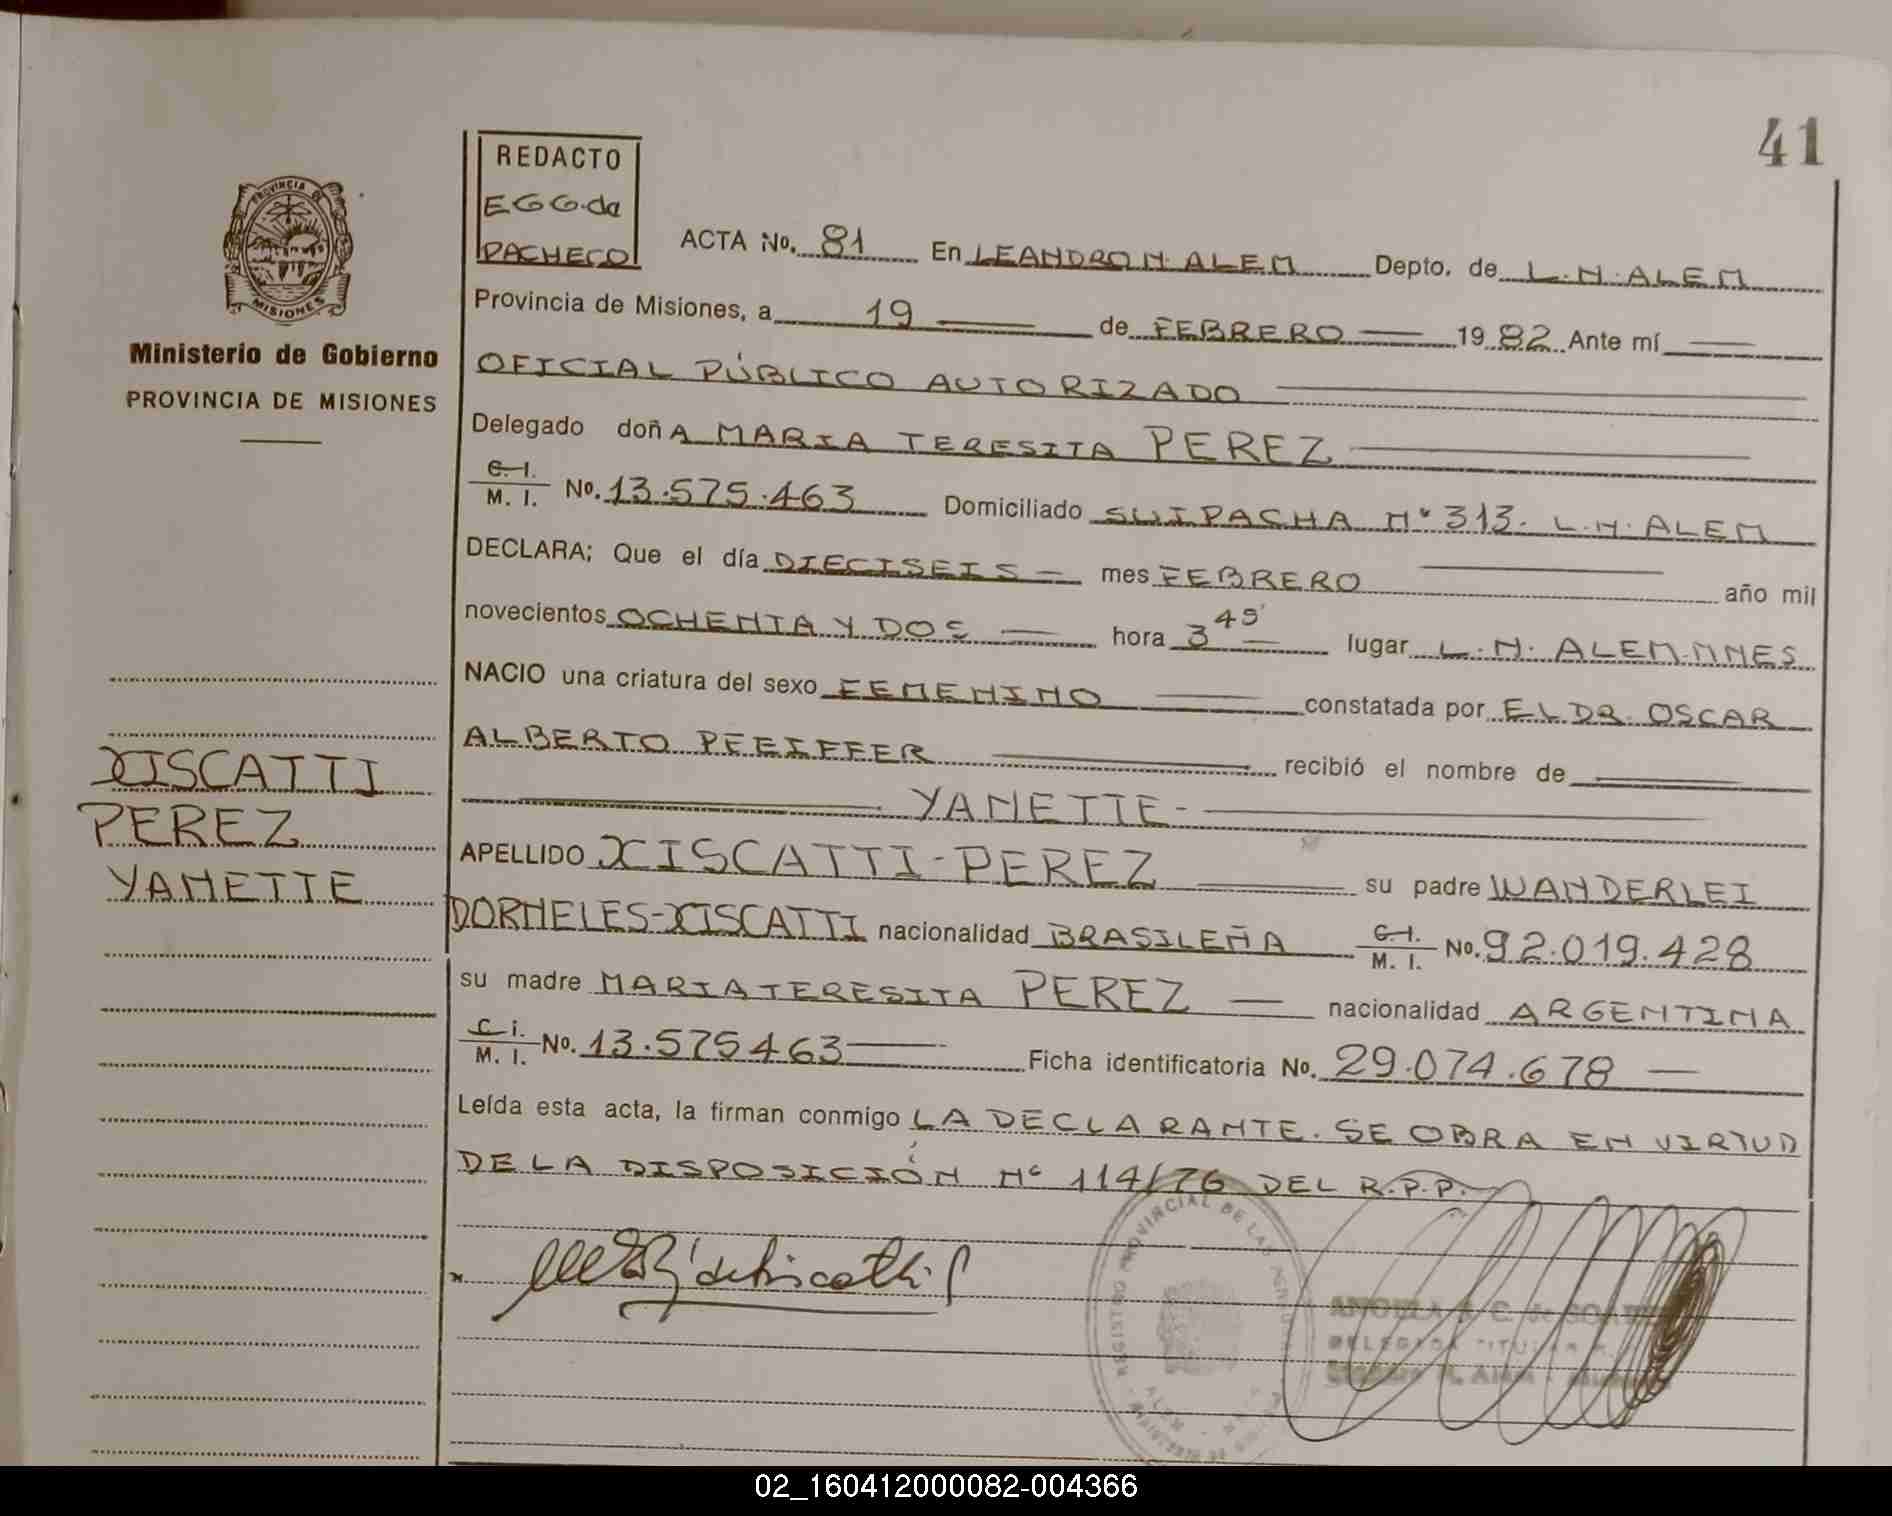 41
REDACTO
EGG.da
PACHECO
PROVINCIA DE
MISIONES
Ministerio de Gobierno
PROVINCIA DE MISIONES
ACTA No. 81 En LEANDRO N. ALEM Depto. de L.N. ALEM
Provincia de Misiones, a 19 de FEBRERO 1982 Ante mí
OFICIAL PÚBLICO AUTORIZADO
Delegado doñA MARIA TERESITA PEREZ
C.I. / M. I. No. 13.575.463 Domiciliado SUIPACHA Nº 313. L.N. ALEM
DECLARA; Que el día DIECISEIS mes FEBRERO año mil
novecientos OCHENTA Y DOS hora 3 45' lugar L.N. ALEM.MNES
NACIO una criatura del sexo FEMENINO constatada por EL DR. OSCAR
ALBERTO PFEIFFER recibió el nombre de
YANETTE-
APELLIDO XISCATTI-PEREZ su padre WANDERLEI
DORNELES-XISCATTI nacionalidad BRASILEÑA C.I. / M. I. No. 92.019.428
su madre MARIA TERESITA PEREZ nacionalidad ARGENTINA
C.i. / M. I. No. 13.575463 Ficha identificatoria No. 29.074.678
Leída esta acta, la firman conmigo LA DECLARANTE. SE OBRA EN VIRTUD
DE LA DISPOSICIÓN Nº 114/76 DEL R.P.P.
XISCATTI
PEREZ
YANETTE
REGISTRO PROVINCIAL DE LAS
C. de
DELEGADA TITULAR
02_160412000082-004366